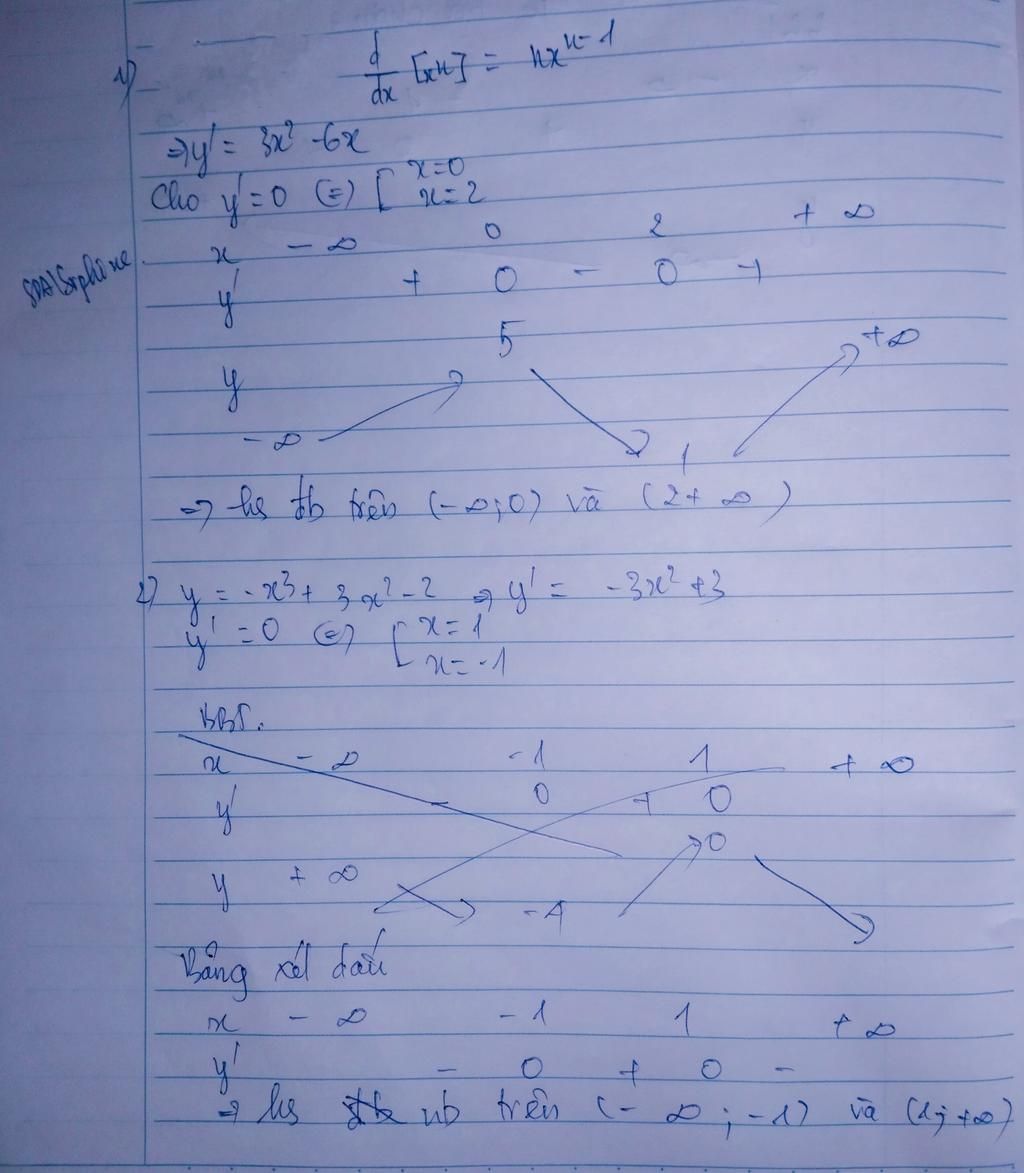 1)
d/dx [xⁿ] = nxⁿ⁻¹
⇒ y' = 3x² - 6x
Cho y' = 0 (=) [ x=0
x=2
x - ∞ 0 2 + ∞
y' + 0 - 0 +
5 +∞
y
- ∞ 1
=> hs đb trên (-∞;0) và (2+ ∞)
2) y = -x³ + 3x² - 2 => y' = -3x² + 3
y' = 0 (=) [ x = 1
x = -1
BBT.
x - ∞ -1 1 + ∞
y' - 0 + 0
0
y + ∞ -4
Bảng xét dấu
x - ∞ -1 1 + ∞
y' - 0 + 0 -
=> hs nb trên (- ∞; -1) và (1; +∞)